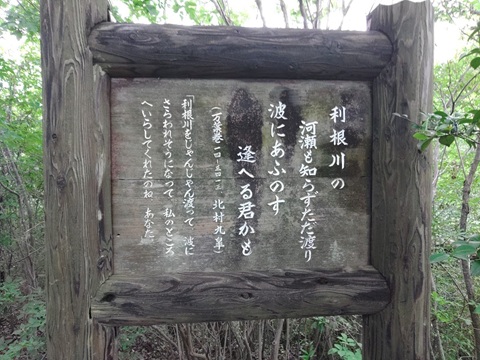 利根川の
河瀬も知らずただ渡り
波にあふのす
逢へる君かも
(万葉巻一四―三四一三 北村九皐)
「利根川をじゃんじゃん渡って 波に
さらわれそうになって 私のところ
へいらしてくれたのね あなた